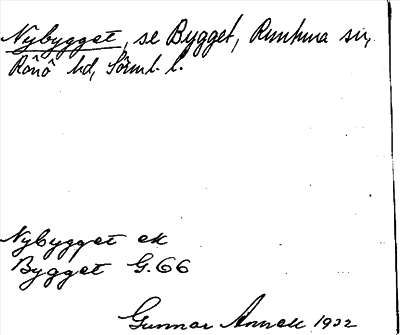 Nybygget, se Bygget, Runtuna sn,
Rönö hd, Sörml. l.
Nybygget ek
Bygget G.66
Gunnar 1932